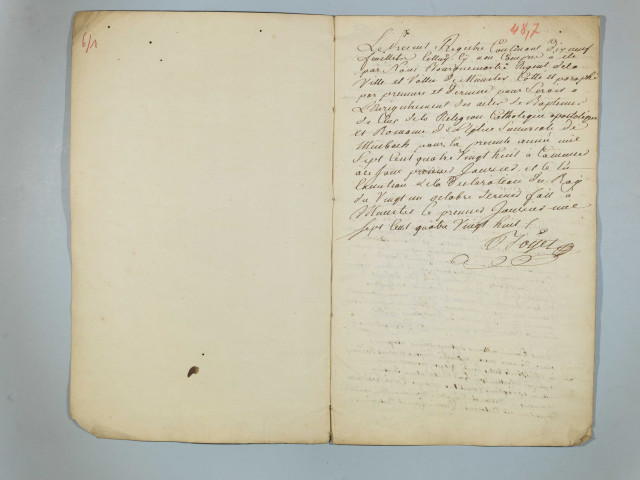 6/1
48,7
Le present Registre Contenant Dix neuf
feuillets Celluy cy non Compris a été
par Nous Bourguemaitre Regent de la
Ville et Vallée De Munster Cotté et paraphé
par premier et Dernier pour Servir a
L'Enregistrement des actes de Baptemes
de Ceux de la Religion Catholique apostolique
et Romaine De l'Eglise Succursale de
Muhlbach pour la presente année mil
Sept Cent quatre Vingt huit a Commencer
au jour premier Janvier, et de la
Declaration du Roy
du Vingt un octobre dernier fait à
Munster le premier Janvier mil
sept Cent quatre Vingt huit /.